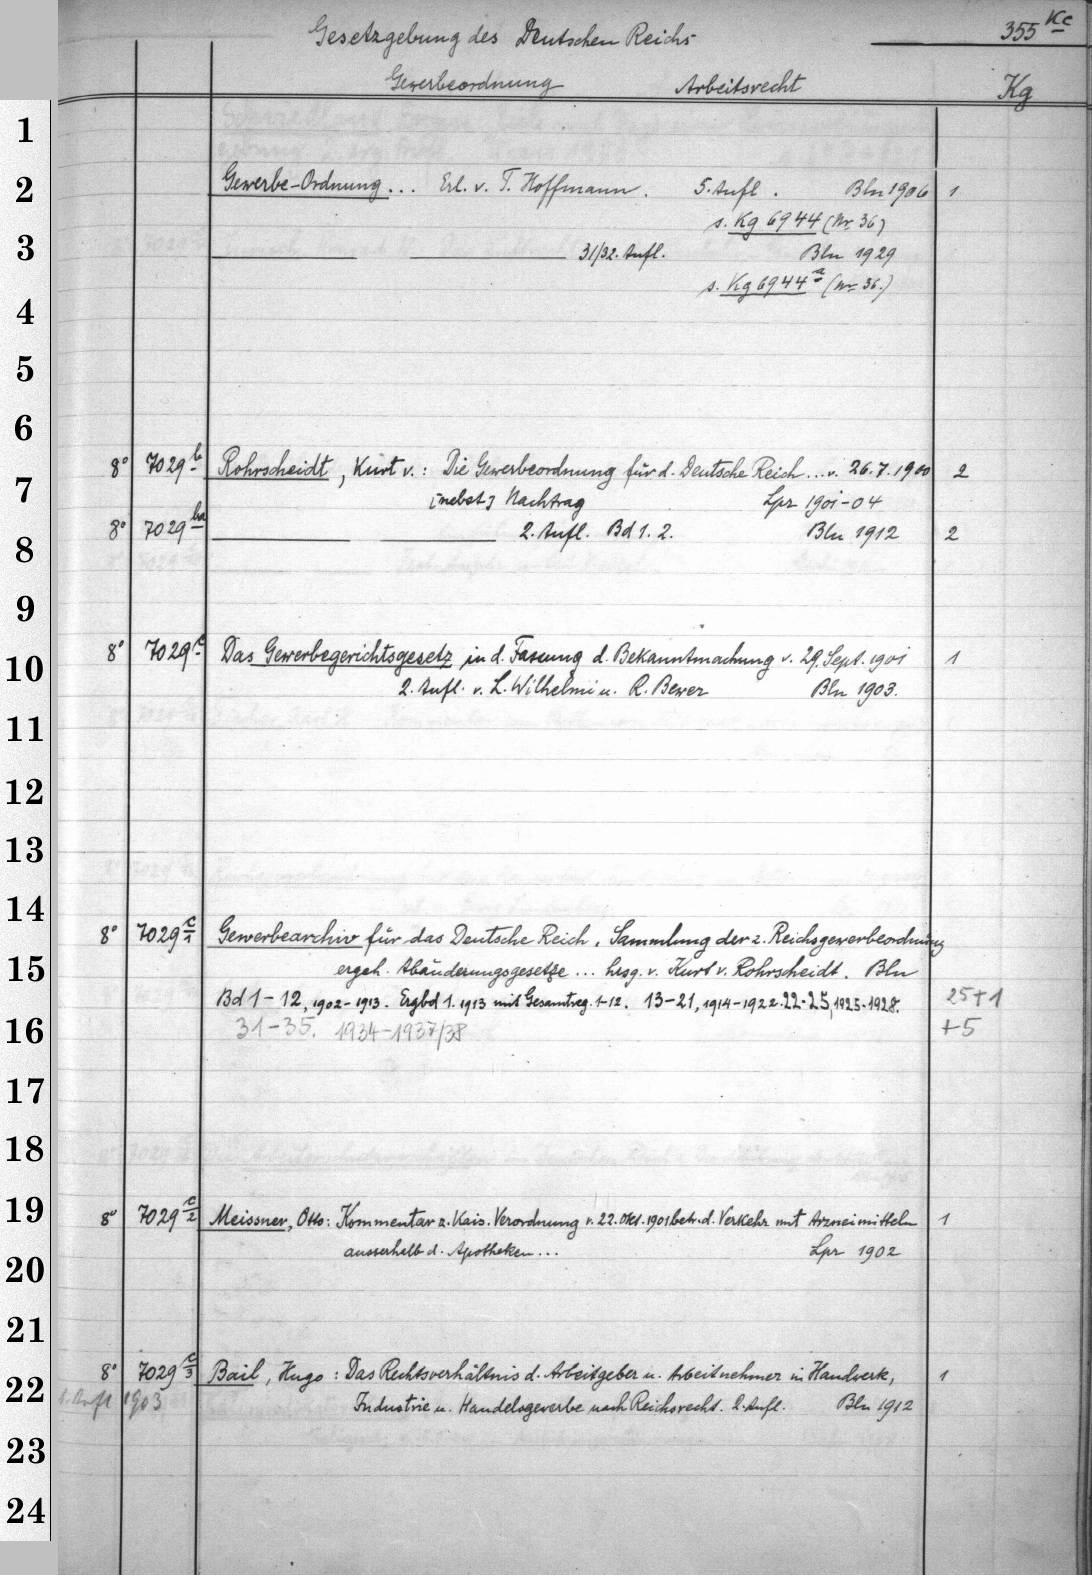 Gesetzgebung des Deutschen Reichs 355 Kc
Gewerbeordnung Arbeitsrecht Kg
1
2 Gewerbe-Ordnung... Erl. v. T. Hoffmann. 5. Aufl. Bln 1906 1
s. Kg 6944 (Nr. 36)
3 31/32. Aufl. Bln 1929
s. Kg 6944 a (Nr. 36.)
4
5
6
8° 7029 b Rohrscheidt, Kurt v.: Die Gewerbeordnung für d. Deutsche Reich... v. 26.7.1900 2
7 [nebst] Nachtrag Lpz 1901-04
8° 7029 ba 2. Aufl. Bd 1. 2. Bln 1912 2
8
9
8° 7029 c Das Gewerbegerichtsgesetz in d. Fassung d. Bekanntmachung v. 29. Sept. 1901 1
10 2. Aufl. v. L. Wilhelmi u. R. Bewer Bln 1903.
11
12
13
14
8° 7029 c/1 Gewerbearchiv für das Deutsche Reich. Sammlung der z. Reichsgewerbeordnung
15 ergeh. Abänderungsgesetze... hrsg. v. Kurt v. Rohrscheidt. Bln
Bd 1-12, 1902-1913. Ergbd 1. 1913 mit Gesamtreg. 1-12. 13-21, 1914-1922. 22-25, 1925-1928. 25+1
16 31-35. 1934-1937/38 +5
17
18
19 8° 7029 c/2 Meissner, Otto: Kommentar z. Kais. Verordnung v. 22. Okt. 1901 betr. d. Verkehr mit Arzneimitteln 1
ausserhalb d. Apotheken... Lpz 1902
20
21
8° 7029 c/3 Bail, Hugo: Das Rechtsverhältnis d. Arbeitgeber u. Arbeitnehmer in Handwerk, 1
22 1. Aufl 1903 Industrie u. Handelsgewerbe nach Reichsrecht. 2. Aufl. Bln 1912
23
24